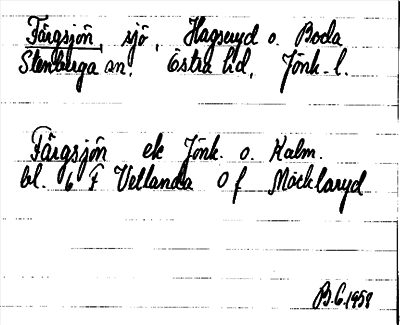 Färgsjön, sjö, Hagseryd o. Boda
Stenberga sn. Östra hd, Jönk. l.
Färgsjön ek Jönk. o. Kalm.
bl. 6 F Vetlanda O f Möcklaryd
B.G. 1958